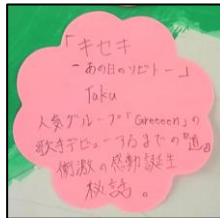 「キセキ
－あの日のソビトー」
Taku
人気グループ「Greeeen」の
歌手デビューするまでの"道。
衝激の感動誕生
秘話。